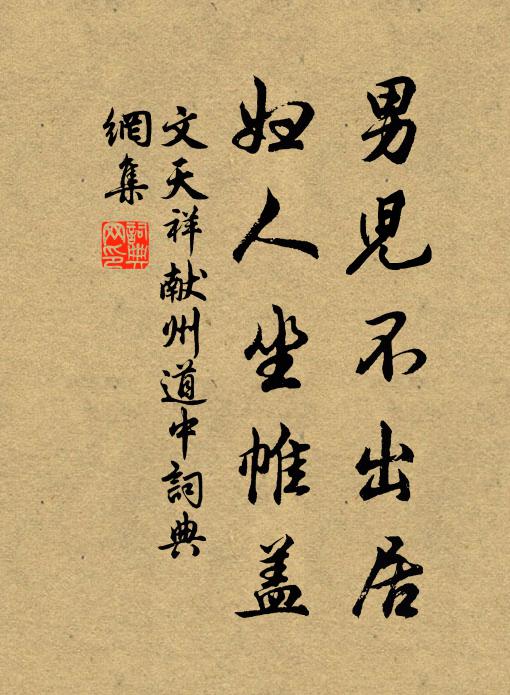 男児不出居
妇人坐帷盖
文天祥献州道中詞典
網集
詞典网印